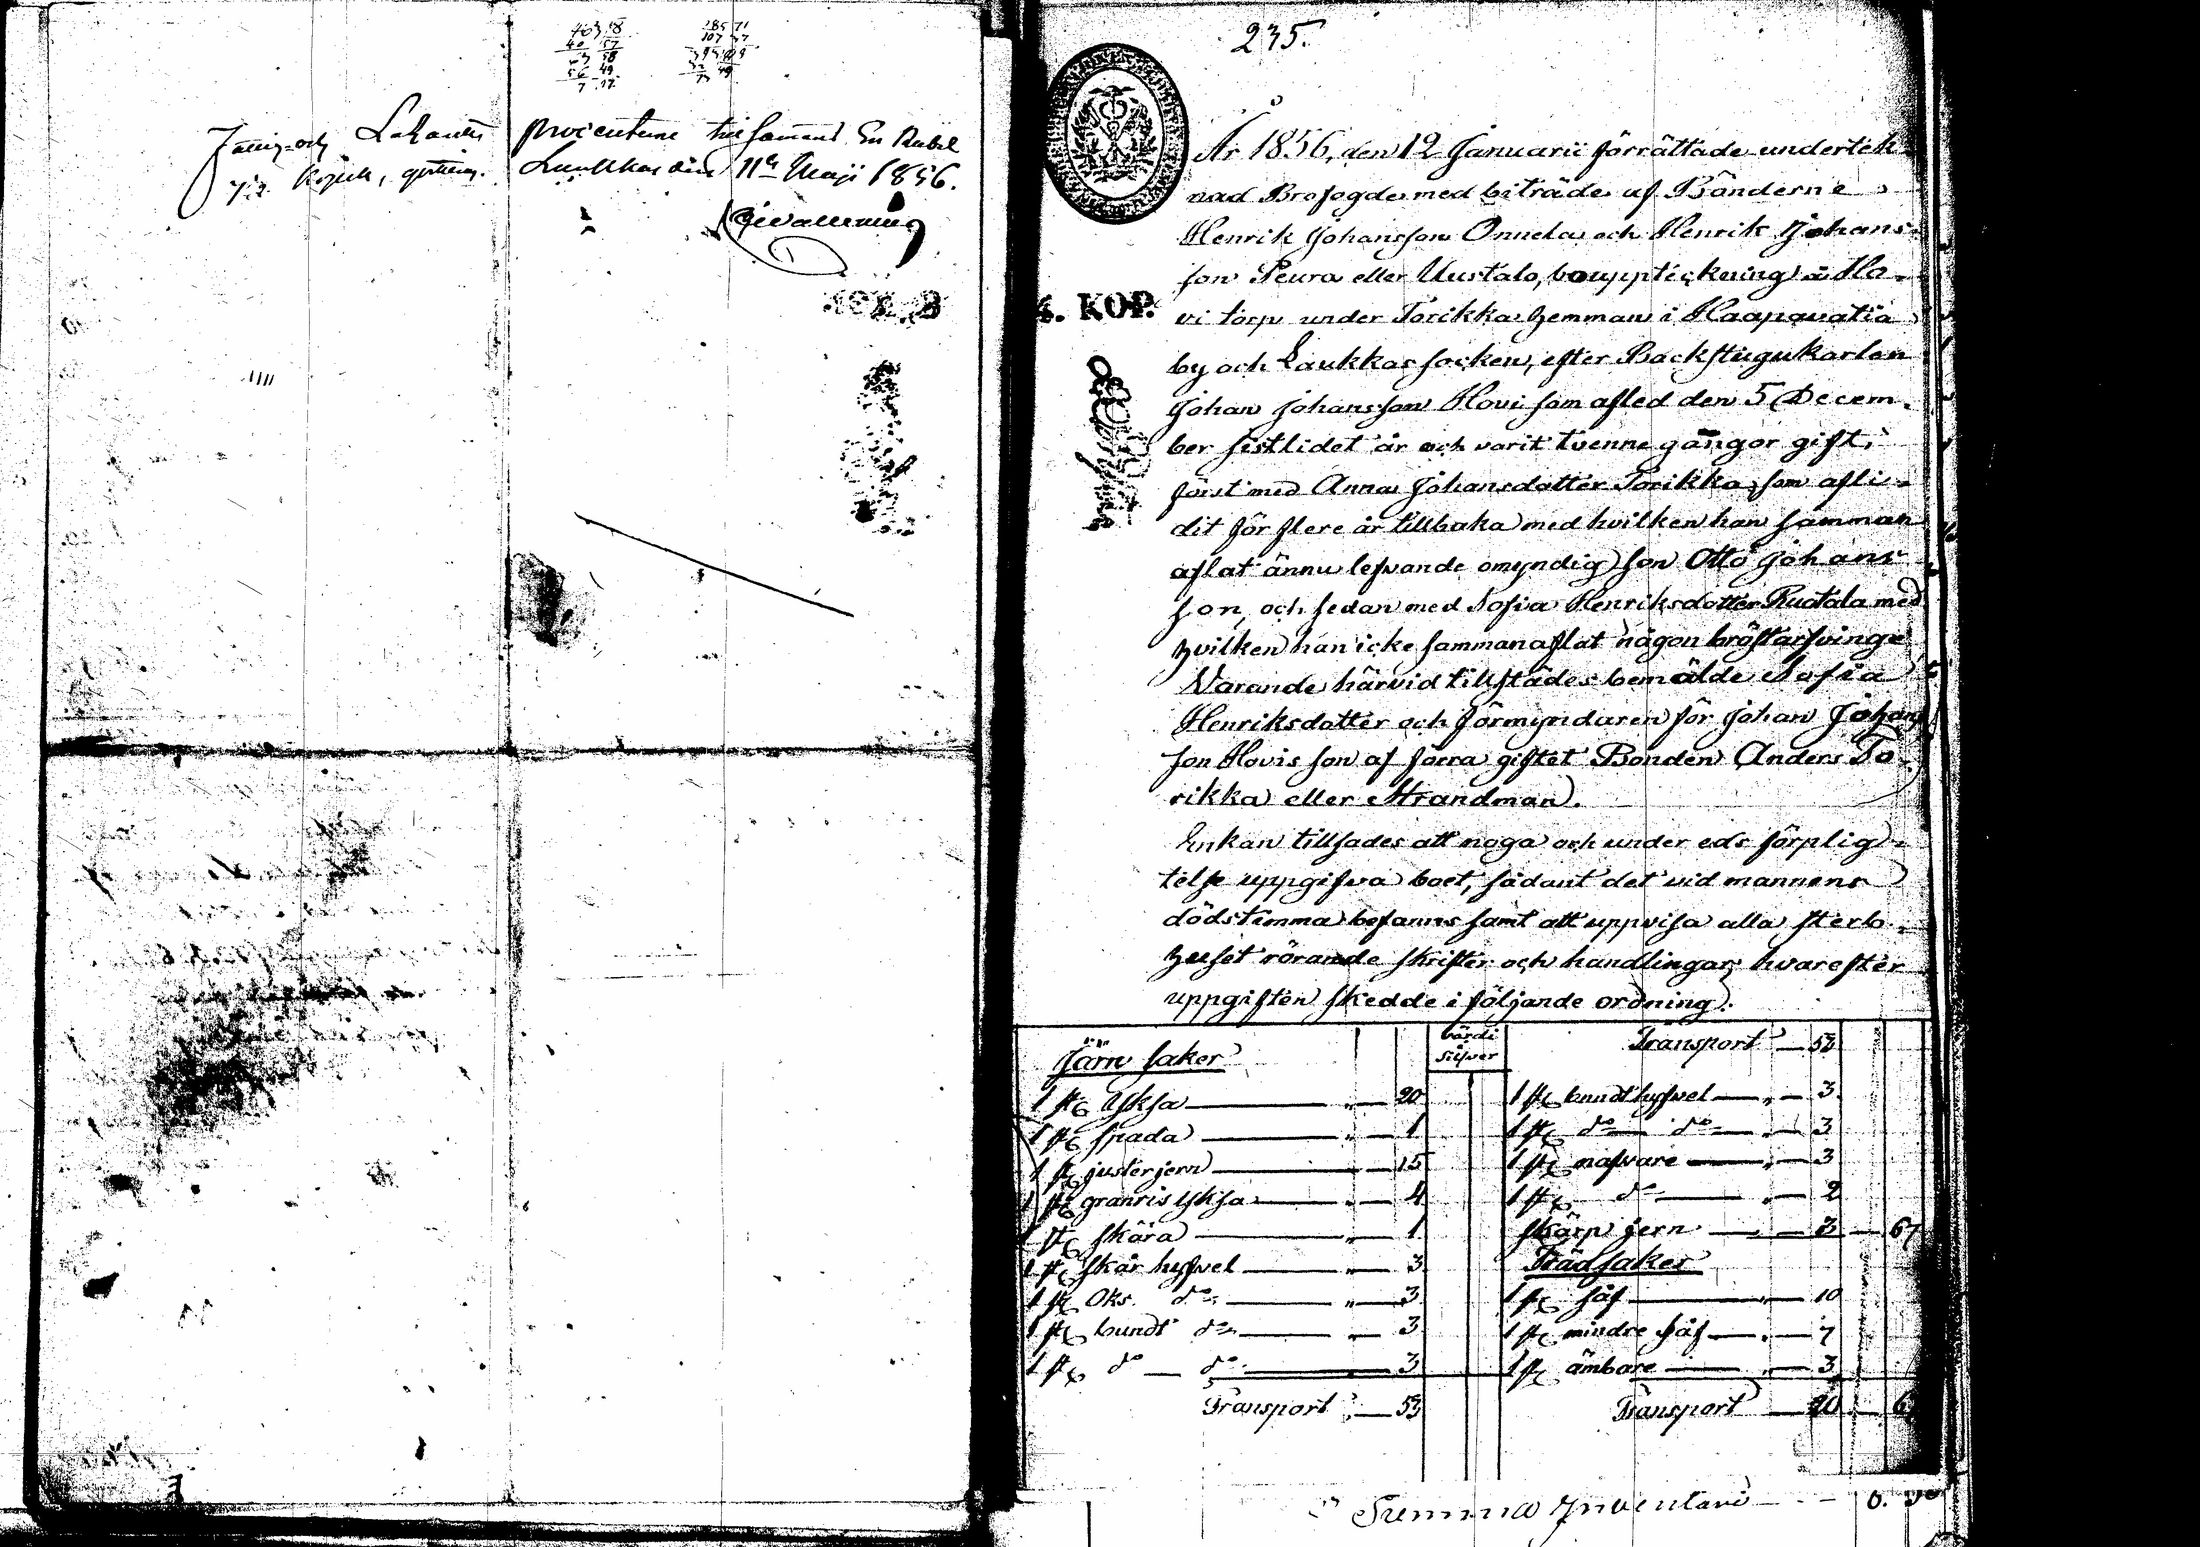 463 58
Fattig- och Lasarett procenterne tillsamans En Rubel
17½ Kopek, qvitteras. Laukkas den 11te Maji 1856.
235.
4. KOP.
År 1856, den 12 Januarii förrättade underteck
nad Brofogde med biträde af Bönderne
Henrik Johansson Onnela och Henrik Johans-
son Peura eller Uustalo, bouppteckning å Ho-
vi torp under Torikka hemman i Haapavatia
by och Laukkas socken, efter Backstugukarlen
Johan Johansson Hovi som afled den 5 Decem-
ber sistlidet år och varit tvenne gångor gift,
först med Anna Johansdotter Torikka, som afli-
dit för flere år tillbaka med hvilken han samman
aflat ännu lefvande omyndig son Otto Johans
son, och sedan med Sofia Henriksdotter Ruotala med
hvilken han icke sammanaflat någon bröstarfvinge
Varande härvid tillstädes bemälde Sofia
Henriksdotter och Förmyndaren för Johan Johans
son Hovis son af förra giftet Bonden Anders To
rikka eller Strandman.
Enkan tillsades att noga och under eds förplig-
telse uppgifva boet, sådant det vid mannens
dödstimma befanns samt att uppvisa alla sterb-
huset rörande skrifter och handlingar, hvarefter
uppgiften skedde i följande ordning.
Järn saker
värdi silfver
1 st yksa — " — 20
1 st spada — " — 1
1 st justerjern — " — 15
1 st granris yksa — " — 4
1 st skära — " — 1
1 st skär hyfvel — " — 3
1 st Oks. do — " — 3
1 st bundt do — " — 3
1 st do — do — 3
Transport " — 53
Transport — 53
1 st bundt hyfvel — " — 3
1 st do — do — " — 3
1 st nafvare — " — 3
1 st do — " — 2
skärp jern — " — 3 — 67
Trädsaker
1 st såf — " — 10
1 st mindre såf — " — 7
1 st ämbare — " — 3
Transport — 20 — 67
Summa Inventarii — 0.